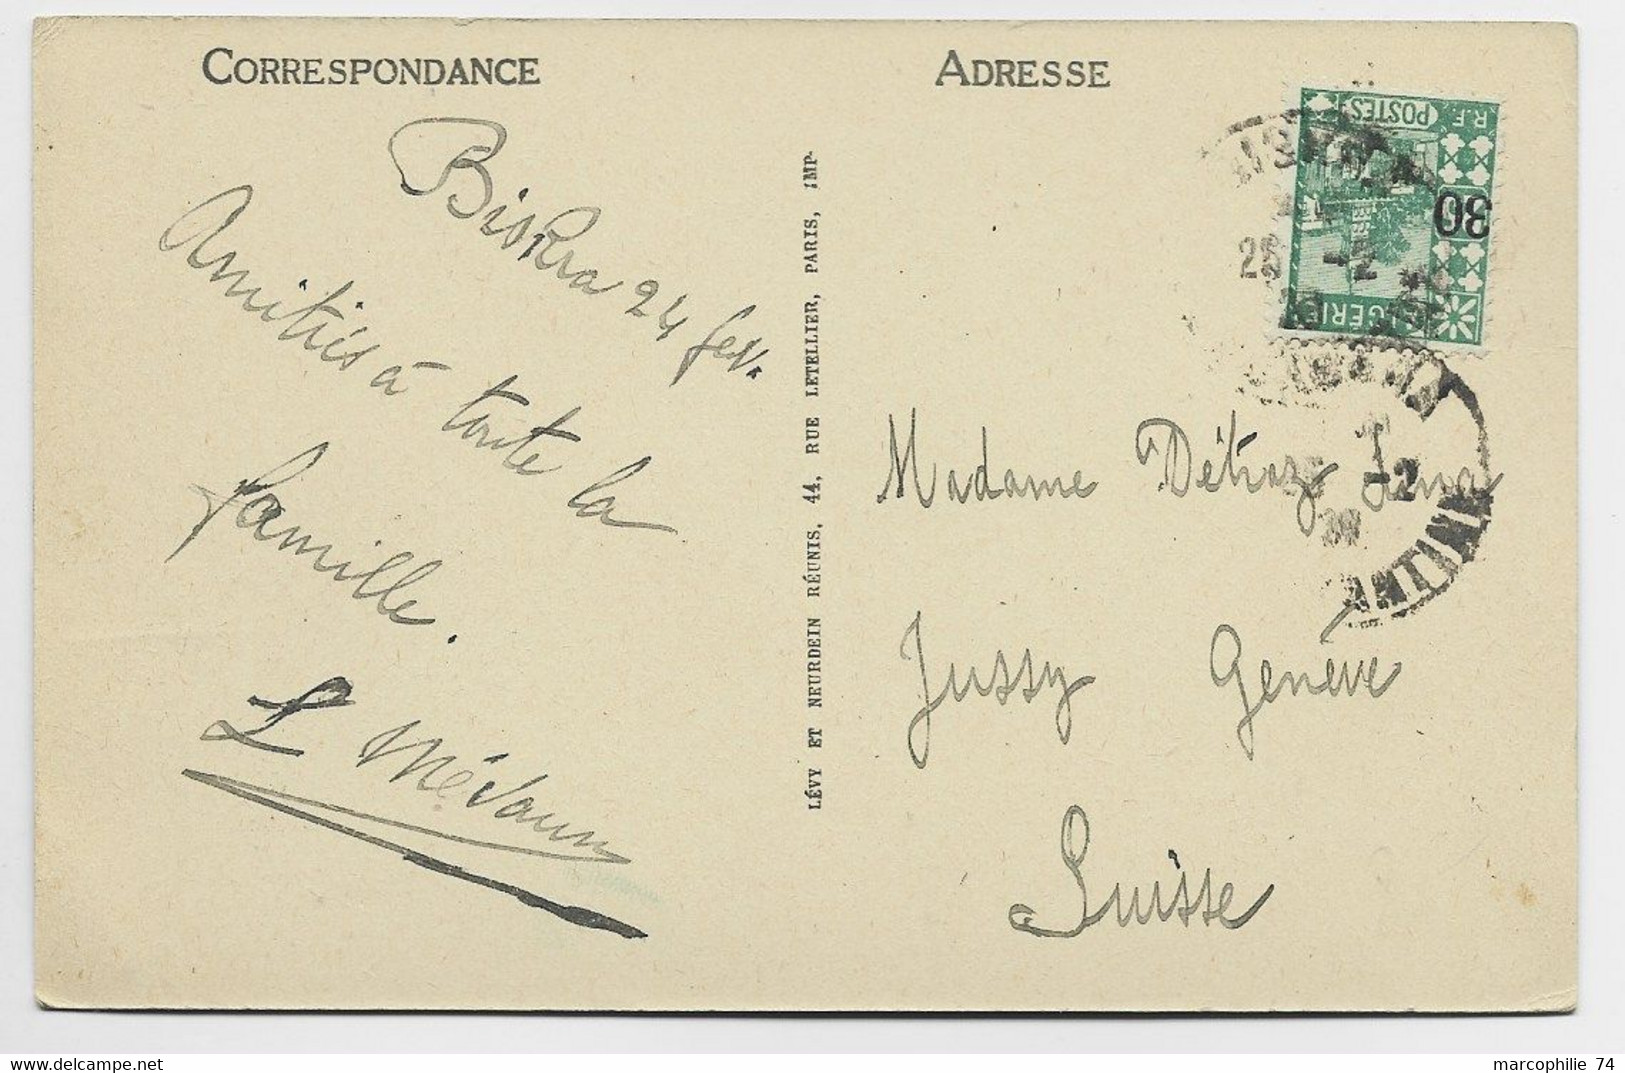 CORRESPONDANCE
ADRESSE
Biskra 24 fev.
Amitiés à toute la
famille.
LÉVY ET NEURDEIN RÉUNIS, 44, RUE LETELLIER, PARIS, IMP.
POSTES
R.F.
30
ALGÉRIE
25 -2
30
-2
30
Madame Détraz
Jussy Genève
Suisse
marcophilie 74